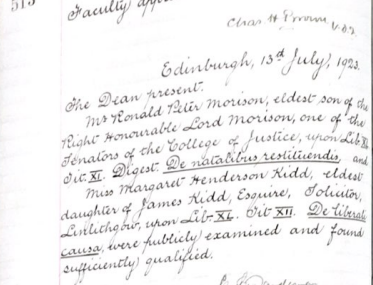 515
Faculty
Chas H Brown, V.D.
Edinburgh, 13th July, 1923.
The Dean present.
Mr Ronald Peter Morison, eldest son of the
Right Honourable Lord Morison, one of the
Senators of the College of Justice, upon Lib. XL
Tit XI. Digest. De natalibus restituendis, and
Miss Margaret Henderson Kidd, eldest
daughter of James Kidd, Esquire, Solicitor,
Linlithgow, upon Lib. XL. Tit XII. De liberali
causa, were publicly examined and found
sufficiently qualified.